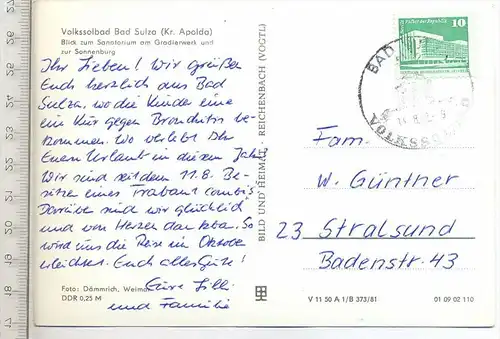 Volkssolbad Bad Sulza (Kr. Apolda)
Blick zum Sanatorium am Gradierwerk und
zur Sonnenburg
Ihr Lieben! Wir grüßen
Euch herzlich aus Bad
Sulza, wo die Kinder eine
ein Kur gegen Bronchitis be-
kommen. Wo verlebt Ihr
Euren Urlaub in diesem Jahr?
Wir sind seit dem 11.8. Be-
sitzer eines Trabant Combis.
Darüber sind wir glücklich
und von Herzen dankbar. So
wird uns die Reise im Oktober
erleichtert. Euch alles Gute!
Eure
und Familie
Foto: Dämmrich, Weimar
DDR 0,25 M
BILD UND HEIMAT · REICHENBACH (VOGTL)
10
BAD
VOLKSSOLBAD
Fam.
W. Günther
23 Stralsund
Badenstr. 43
V 11 50 A 1/B 373/81
01 09 02 110
17 18 19 20 21 22 23 24 25 26 27